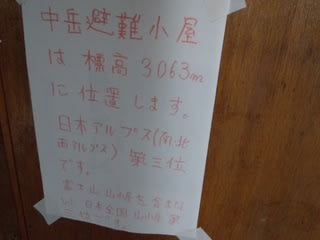 中岳避難小屋
は標高3063m
に位置します。
日本アルプス(南北
両アルプス)第三位
です。
富士山山小屋を含まな
い日本全国山小屋第
三位です。